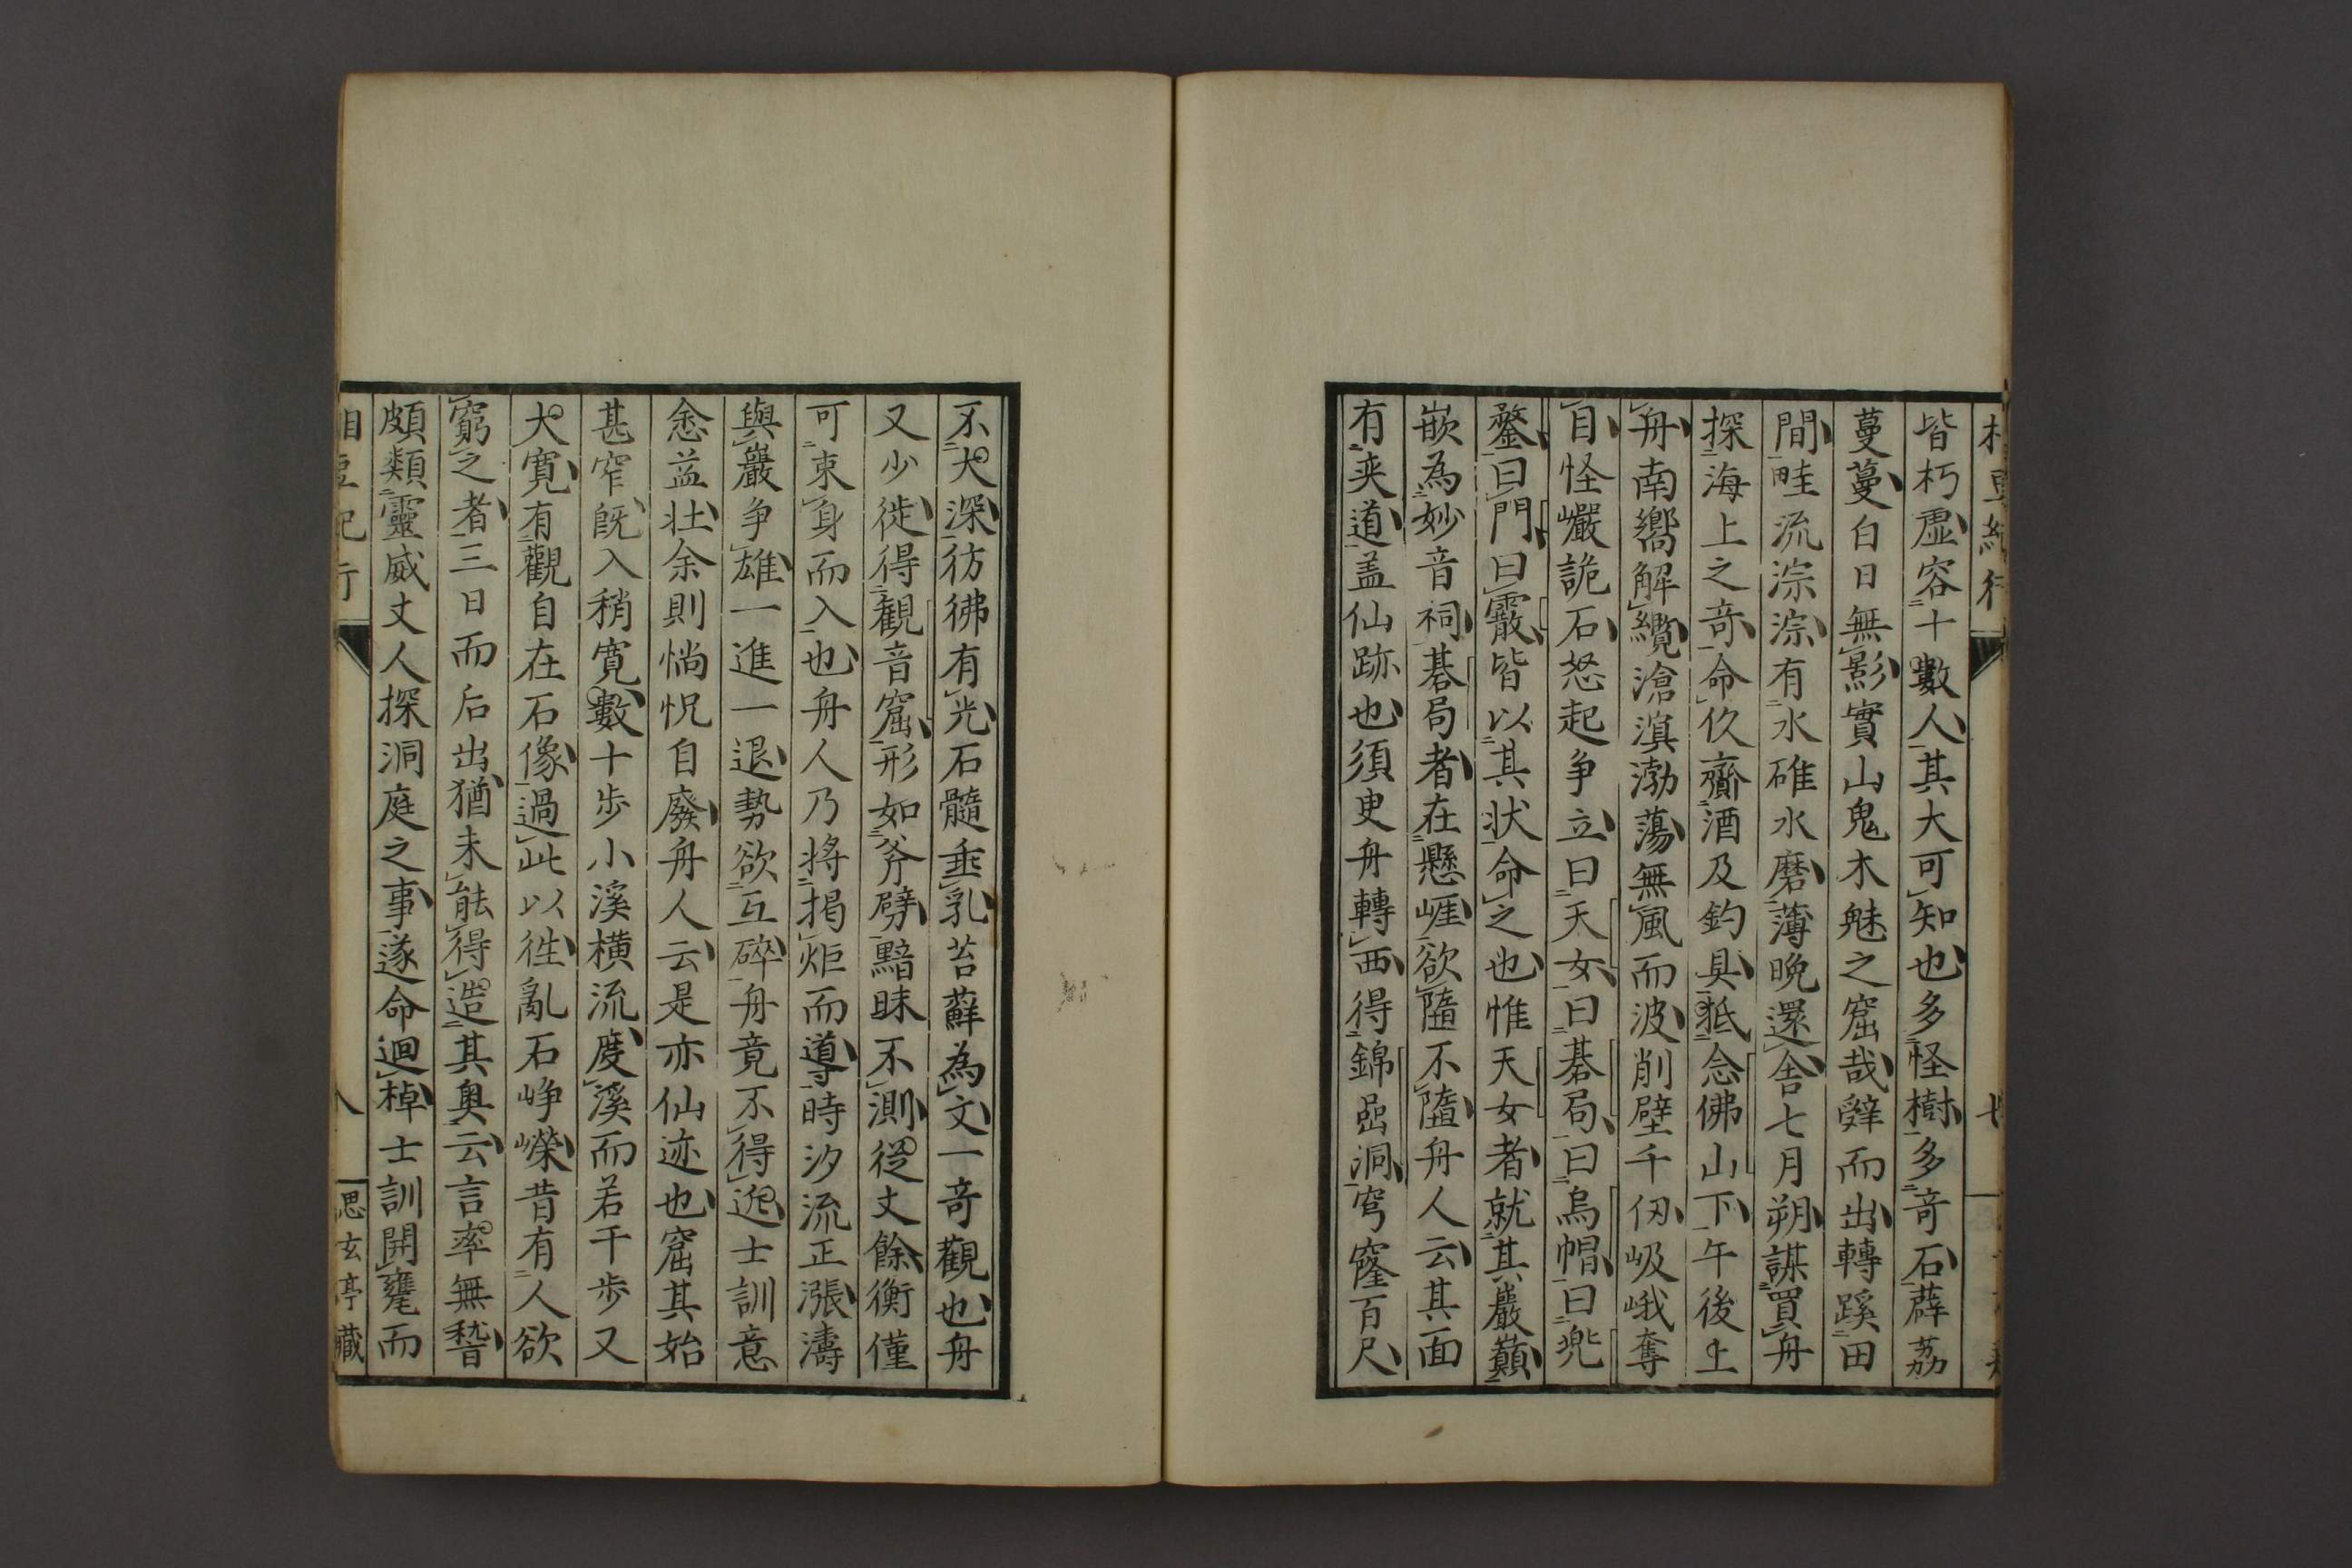 皆朽虛容十數人其大可知也多怪樹多奇石薜荔
蔓蔓白日無影實山鬼木魅之窟哉辤而出轉蹊田
間畦流淙淙有水碓水磨薄晚還舍七月朔謀買舟
探海上之奇命伙齎酒及釣具抵念佛山下午後上
舟南嚮解纜滄溟渤蕩無風而波削壁千仭岋峨奪
目怪巗詭石怒起争立曰天女曰碁局曰烏帽曰兠
鍪曰門曰霰皆以其状命之也惟天女者就其巖巔
嵌為妙音祠碁局者在懸崕欲隨不隨舟人云其面
有奕道盖仙跡也須臾舟轉西得錦嵒洞穹窿百尺
不大深彷彿有光石髓垂乳苔蘚為文一奇觀也舟
又少徙得觀音窟形如斧劈黯昧不測從丈餘衡僅
可束身而入也舟人乃将揭炬而導時汐流正漲濤
與巖争雄一進一退勢欲互碎舟竟不得迯士訓意
悆益壮余則惝怳自廢舟人云是亦仙迹也窟其始
甚窄既入稍寛數十歩小溪横流度溪而若干歩又
大寛有觀自在石像過此以徃亂石峥嶸昔有人欲
窮之者三日而后出猶未能得造其奥云言率無稽
頗類靈威丈人探洞庭之事遂命迴棹士訓開甕而
思玄亭藏